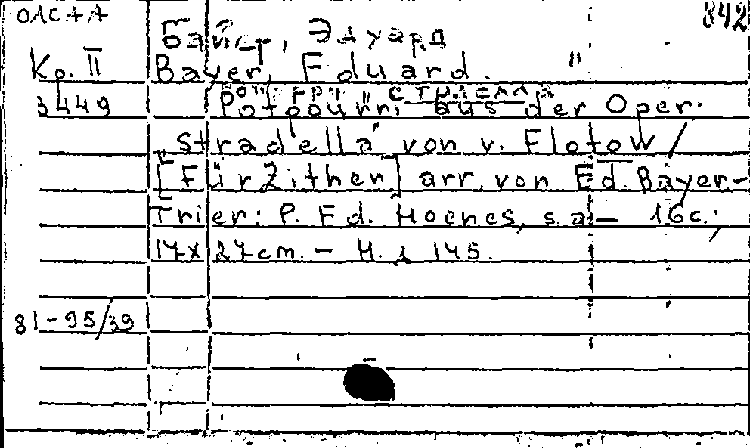 ОЛСАА 842
Байер, Эдуард
Кр. II Bayer, Eduard.
Попурри "Страделла
3449 Potpourri aus der Oper.
"Stradella" von v. Flotow /
[Für Zither] arr. von Ed. Bayer –
Trier: P. Ed. Hoenes, s.a. – 16 c.;
17x27 cm. – H. 145.
81-95/39